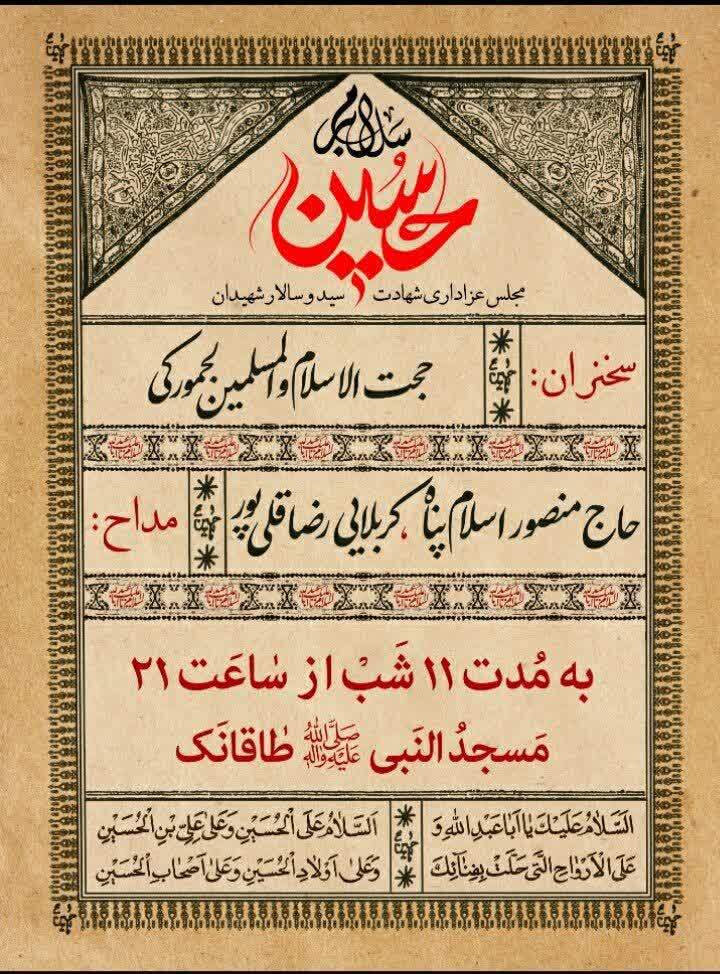 سلام بر
حسین
مجلس عزاداری شهادت سید و سالار شهیدان
سخنران: حجت الاسلام والمسلمین
حاج منصور اسلام پناه، کربلایی رضا قلی پور
مداح:
به مُدت ۱۱ شَبْ از سٰاعَت ۲۱
مَسجدُ النَبی صَلَّی اللهُ عَلَیْهِ وَآلِه طٰاقانَک
اَلسَّلامُ عَلَیْكَ یا اَباعَبْدِ اللهِ وَ
عَلَی الْاَرْواحِ الَّتی حَلَّتْ بِفِنائِكَ
اَلسَّلامُ عَلَی الْحُسَیْنِ وَعَلیٰ عَلِیِّ بْنِ الْحُسَیْنِ
وَعَلیٰ اَوْلادِ الْحُسَیْنِ وَعَلیٰ اَصْحٰابِ الْحُسَیْنِ